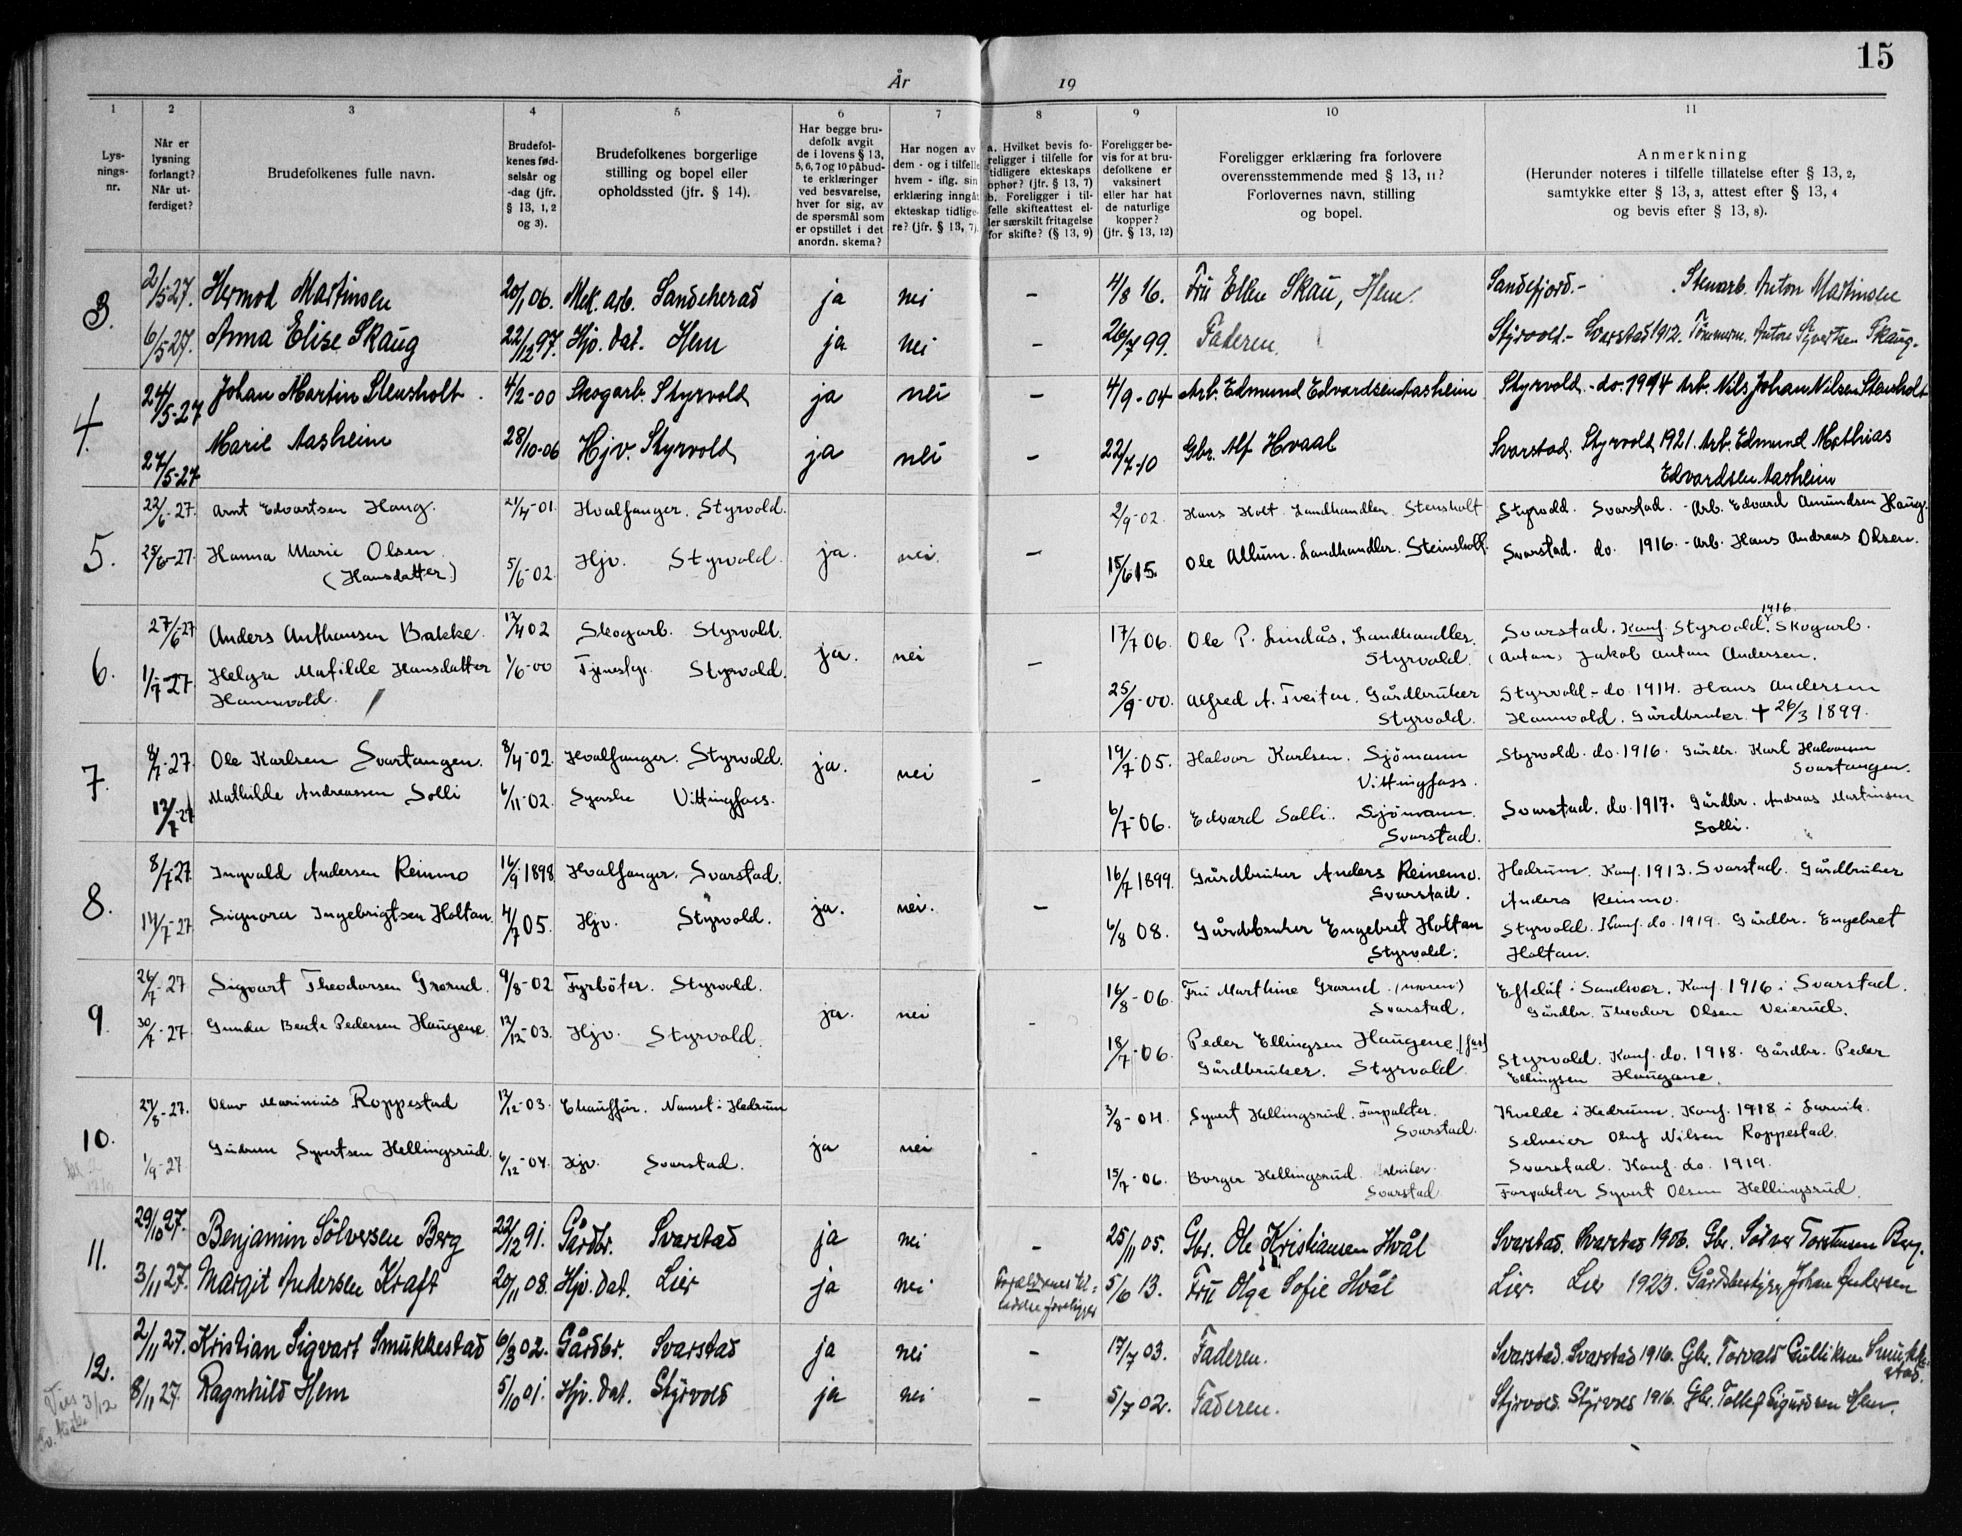 15
År 19
1 2 3 4 5 6 7 8 9 10 11
Lys-
nings-
nr.
Når er
lysning
forlangt?
Når ut-
ferdiget?
Brudefolkenes fulle navn.
Brudefol-
kenes fød-
selsår og
-dag (jfr.
§ 13, 1, 2
og 3).
Brudefolkenes borgerlige
stilling og bopel eller
opholdssted (jfr. § 14).
Har begge bru-
defolk avgit
de i lovens § 13,
5, 6, 7 og 10 påbud-
te erklæringer
ved besvarelse,
hver for sig, av
de spørsmål som
er opstillet i det
anordn. skema?
Har nogen av
dem - og i tilfelle
hvem - iflg. sin
erklæring inngåt
ekteskap tidlige-
re? (jfr. § 13, 7).
a. Hvilket bevis fo-
religger i tilfelle for
tidligere ekteskaps
ophør? (jfr. § 13, 7)
b. Foreligger i til-
felle skifteattest el-
ler særskilt fritagelse
for skifte? (§ 13, 9)
Foreligger be-
vis for at bru-
defolkene er
vaksinert
eller har hat
de naturlige
kopper?
(jfr. § 13, 12)
Foreligger erklæring fra forlovere
overensstemmende med § 13, 11?
Forlovernes navn, stilling
og bopel.
Anmerkning
(Herunder noteres i tilfelle tillatelse efter § 13, 2,
samtykke etter § 13, 3, attest efter § 13, 4
og bevis efter § 13, 8).
3. 2/5-27. Hermod Martinsen 20/1 06. Mek. arb. Sandeherad ja nei – 4/8 16. Fru Ellen Skau, Hem. Sandefjord.- Stenarb. Anton Martinsen
6/5-27. Anna Elise Skaug 22/12 97. Hjv. dat. Hem ja nei – 26/7 99. Faderen. Styrvold.- Svarstad 1912. Tømmerm. Anton Syvertsen Skaug.
4. 24/5-27 Johan Martin Stensholt 4/2-00 Skogarb. Styrvold ja nei – 4/9-04 Arb. Edmund Edvardsen Aasheim Styrvold - do. 1914 Arb. Nils Johan Nilsen Stensholt
27/5-27 Marie Aasheim 28/10-06 Hjv. Styrvold ja nei – 22/7-10 Gbr. Alf Hvaal Svarstad. Styrvold 1921. Arb. Edmund Mathias
Edvardsen Aasheim
5. 22/6-27. Arnt Edvartsen Haug. 21/4-01. Hvalfanger. Styrvold. 2/9-02. Hans Holt. Landhandler. Stensholt Styrvold. Svarstad. - Arb. Edvard Amundsen Haug.
25/6-27. Hanna Marie Olsen 5/6-02. Hjv. Styrvold. ja. nei. – 15/6 15. Ole Allum. Landhandler. Steinsholt. Svarstad. do. 1916. - Arb. Hans Andreas Olsen.
(Hansdatter)
6. 27/6-27 Anders Anthansen Bakke. 12/4 02 Skogarb. Styrvold. ja. nei – 17/7 06. Ole P. Lindås. Landhandler. Svarstad. Konf. Styrvold 1916. Skogarb.
Styrvold. (Anton) Jakob Antan Andersen.
1/7-27. Helga Mafilde Hansdatter 1/6-00 Tjenestp. Styrvold. 25/9-00. Alfred A. Tveitan. Gårdbruker Styrvold - do 1914. Hans Andersen
Hannvold. Styrvold. Hannvold. Gårdbruker. † 26/3 1899.
7. 8/7-27. Ole Karlsen Svartangen. 8/4-02. Hvalfanger. Styrvold. ja. nei – 19/7-05. Halvor Karlsen. Sjömann Styrvold. do. 1916. Gårdbr. Karl Halvorsen
Vittingfoss. Svartangen.
12/7-27 Mathilde Andreassen Solli 6/11-02. Syerske Vittingfoss. 6/7-06. Edvard Solli. Sjömann. Svarstad. do. 1917. Gårdbr. Andreas Martinsen
Svarstad. Solli.
8. 8/7-27. Ingvald Andersen Reinmo 16/9 1898. Hvalfanger. Svarstad. 16/7 1899. Gårdbruker Anders Reinemo. Hedrum. Konf. 1913. Svarstad. Gårdbruker
Svarstad. Anders Reinmo.
14/7-27 Signora Ingebrigtsen Holtan. 4/7 05. Hjv. Styrvold. ja. nei. – 6/8 08. Gårdbruker Engebret Holtan Styrvold. Konf. do. 1919. Gårdbr. Engebret
Styrvold. Holtan.
9. 26/7-27 Sigvart Theodorsen Grorud. 9/8-02 Fyrböter. Styrvold. ja. nei – 16/8-06. Fru Marthine Grorud. (moren) Efteløt i Sandsvær. Konf. 1916 i Svarstad.
Svarstad. Gårdbr. Theodor Olsen Veierud.
30/7-27 Gunda Beate Pedersen Haugene 12/12-03. Hjv. Styrvold. 18/7-06. Peder Ellingsen Haugene. (far) Styrvold. Konf. do. 1918. Gårdbr. Peder
Gårdbruker. Styrvold. Ellingsen Haugane.
10. 27/8-27. Olav Marinius Roppestad 17/12-03. Chauffør. Nanset i Hedrum 3/8-04. Syvert Hellingsrud. Forpakter. Kvelde i Hedrum. Konf. 1918 i Larvik.
Svarstad. Selveier Oluf Nilsen Roppestad.
1/9-27 Gudrun Syvertsen Hellingsrud. 6/12-04. Hjv. Svarstad. ja nei - 15/7-06. Borger Hellingsrud. Arbeider. Svarstad. Konf. do. 1919.
Svarstad Forpakter Syvert Olsen Hellingsrud.
11. 29/10 27. Benjamin Sölversen Berg 22/12 91. Gårdbr. Svarstad ja nei – 25/11 05. Gbr. Ole Kristiansen Hvål Svarstad. Svarstad 1906. Gbr. Sölver Torstensen Berg.
3/11 27. Margit Andersen Kraft 20/11 08. Hjv. dat. Lier ja nei Forældrenes til-
ladelse foreligger 5/6 13. Fru Olga Sofie Hvål Lier. Lier 1923. Gårdsbestyrer Johan Andersen
12. 2/11 27. Kristian Sigvart Smukkestad 6/3 02. Gårdbr. Svarstad ja nei – 17/7 03. Faderen. Svarstad. Svarstad 1916. Gbr. Torvald Gulliksen Smukke-
stad.
8/11 27. Ragnhild Hem 5/10 01. Hjv. dat. Styrvold ja nei – 5/7 02. Faderen. Styrvold. Styrvold 1916. Gbr. Tollef Sigurdsen Hem.
Vies 3/12